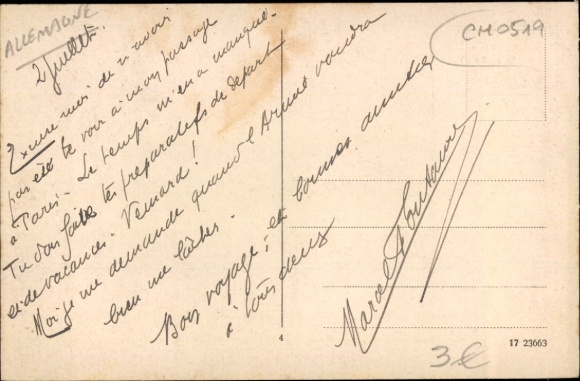 ALLEMAGNE
CM0519
2 Juillet.
Excuse moi de n'avoir
pas été te voir à mon passage
à Paris. Le temps m'en a manqué.
Tu dois faire tes préparatifs de départ
et de vacances. Veinard!
Moi je me demande quand l'Armée voudra
bien me lâcher.
Bon voyage, et bonnes amitiés
à tous deux
Marcel
4
17 23663
3€